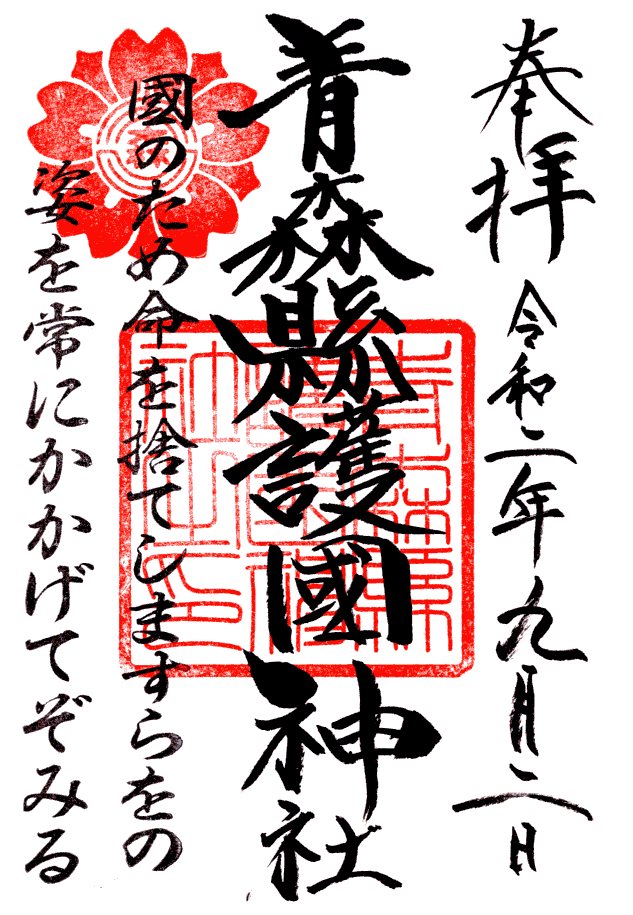 奉拝 令和二年九月二日
青森縣護國神社
國のため命を捨てしますらをの
姿を常にかかげてぞみる